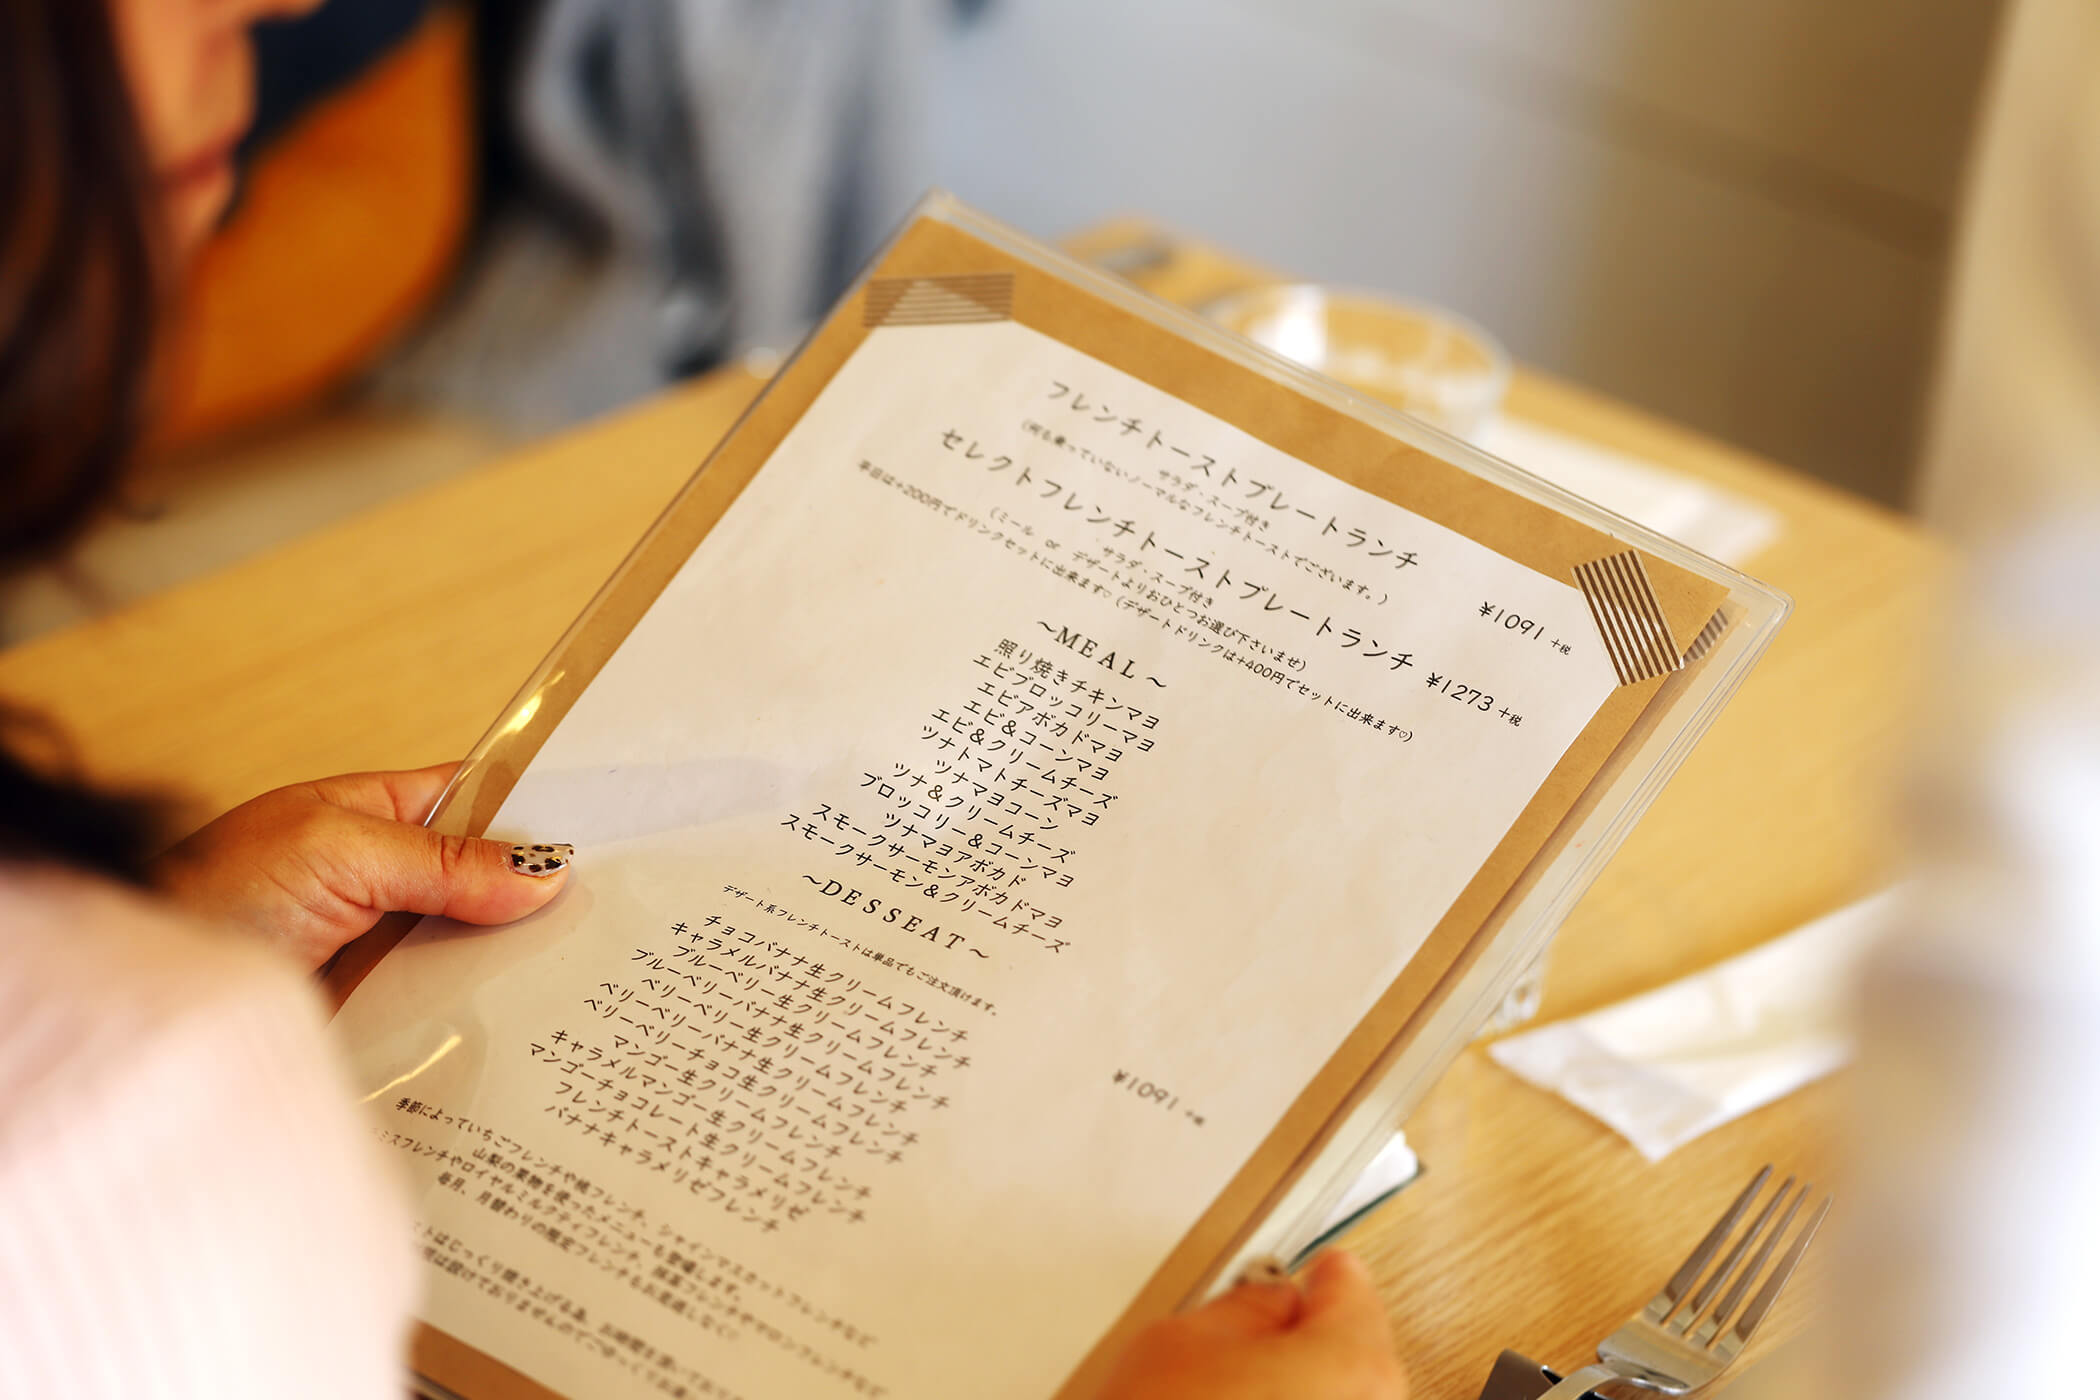 フレンチトーストプレートランチ
サラダ・スープ付き
(何も乗っていないノーマルなフレンチトーストでございます。)
¥1091 +税
セレクトフレンチトーストプレートランチ ¥1273 +税
サラダ・スープ付き
(ミール or デザートよりおひとつお選び下さいませ)
平日は+200円でドリンクセットに出来ます♡(デザートドリンクは+400円でセットに出来ます♡)
~MEAL~
照り焼きチキンマヨ
エビブロッコリーマヨ
エビアボカドマヨ
エビ&コーンマヨ
エビ&クリームチーズ
ツナトマトチーズマヨ
ツナマヨコーン
ツナ&クリームチーズ
ブロッコリー&コーンマヨ
ツナマヨアボカド
スモークサーモンアボカドマヨ
スモークサーモン&クリームチーズ
~DESSEAT~
デザート系フレンチトーストは単品でもご注文頂けます。
¥1091 +税
チョコバナナ生クリームフレンチ
キャラメルバナナ生クリームフレンチ
ブルーベリー生クリームフレンチ
ブルーベリーバナナ生クリームフレンチ
ベリーベリー生クリームフレンチ
ベリーベリーバナナ生クリームフレンチ
ベリーベリーチョコ生クリームフレンチ
マンゴー生クリームフレンチ
キャラメルマンゴー生クリームフレンチ
マンゴーチョコレート生クリームフレンチ
フレンチトーストキャラメリゼ
バナナキャラメリゼフレンチ
季節によっていちごフレンチや桃フレンチ、シャインマスカットフレンチなど
山梨の果物を使ったメニューも登場します。
ミスフレンチやロイヤルミルクティフレンチ、抹茶フレンチやマロンフレンチなど
毎月、月替わりの限定フレンチもお見逃しなく♡
トはじっくり焼き上げる為、お時間を頂いており
は設けておりませんのでごゆっくりお